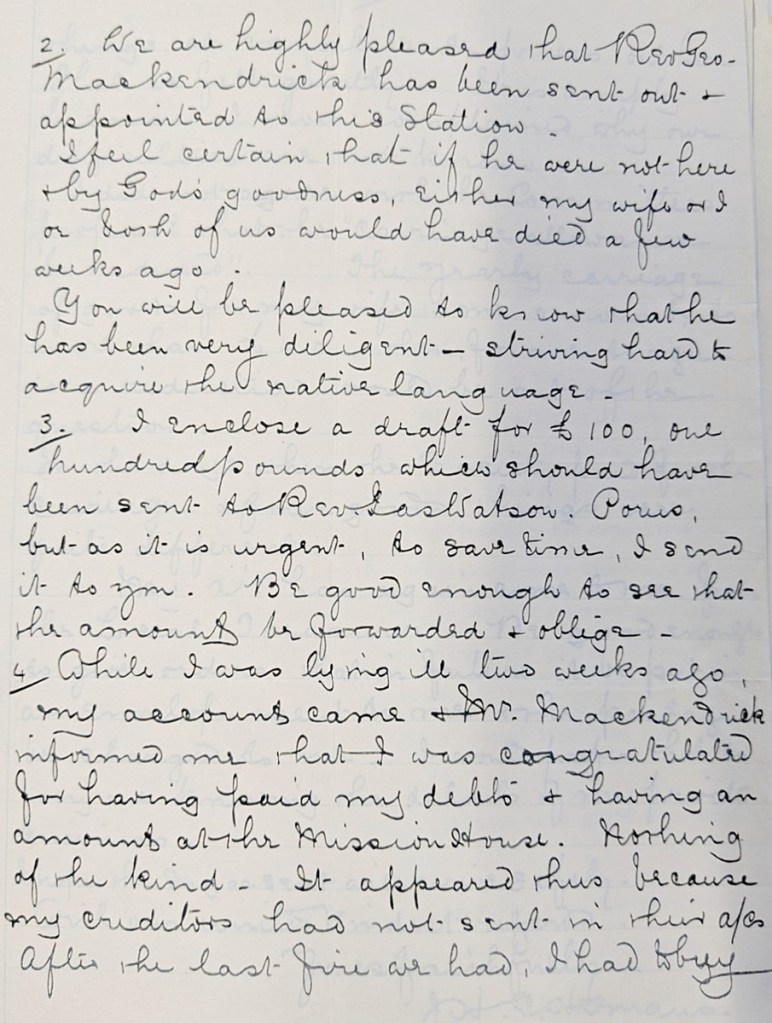 2. We are highly pleased that Rev Geo-
Mackendrick has been sent out &
appointed to this Station.
I feel certain that if he were not here
& by God's goodness, either my wife or I
or both of us would have died a few
weeks ago.
You will be pleased to know that he
has been very diligent - striving hard to
acquire the native language -
3. I enclose a draft for £100, one
hundred pounds which should have
been sent to Rev Jas Watson. Porus,
but as it is urgent, to save time, I send
it to you. Be good enough to see that
the amount be forwarded & oblige -
4/ While I was lying ill two weeks ago,
my account came & Mr. Mackendrick
informed me that I was congratulated
for having paid my debts & having an
amount at the Mission House. Nothing
of the kind - It appeared thus because
my creditors had not sent in their a/cs
After the last fire we had, I had to buy